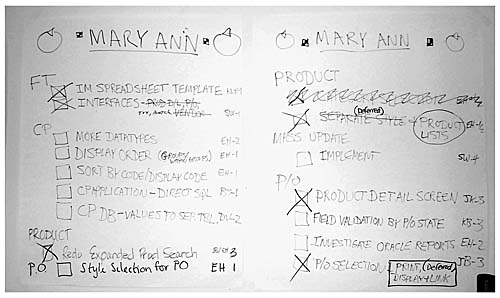 MARY ANN
FT
IM SPREADSHEET TEMPLATE
INTERFACES - PROD D/L, P/O,
VENDOR SW-1
CP
MORE DATATYPES EH-2
DISPLAY ORDER EH-1
SORT BY CODE/DISPLAY CODE EH-1
CP APPLICATION - DIRECT SQL
CP DB - VALUES TO SEP. TBL. DLL-2
PRODUCT
Redo Expanded Prod Search 3
P.O. Style Selection for PO EH 1
MARY ANN
PRODUCT
(Deferred)
SEPARATE STYLE + PRODUCT LISTS
MASS UPDATE
IMPLEMENT SW-4
P/O
PRODUCT DETAIL SCREEN JK-3
FIELD VALIDATION BY P/O STATE KB-3
INVESTIGATE ORACLE REPORTS EH-2
P/O SELECTION JB-3
PRINT, (Deferred)
DISPLAY + LINK